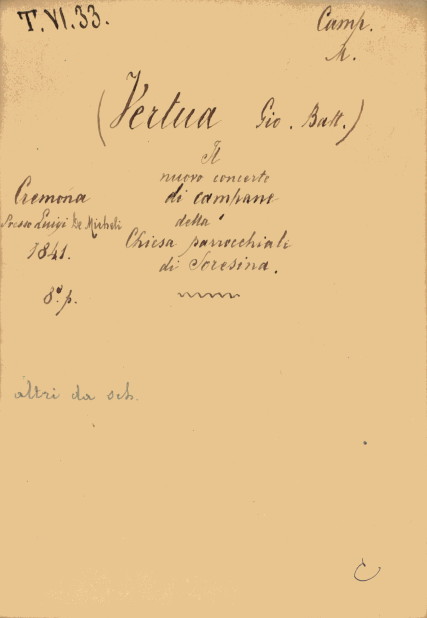 T.VI.33.
Camp.
M.
(Vertua Gio. Batt.)
Il
nuovo concerto
di campane
della
Chiesa parrocchiale
di Soresina.
Cremona
Presso Luigi De Micheli
1841.
8º p.
altri da sch.
C